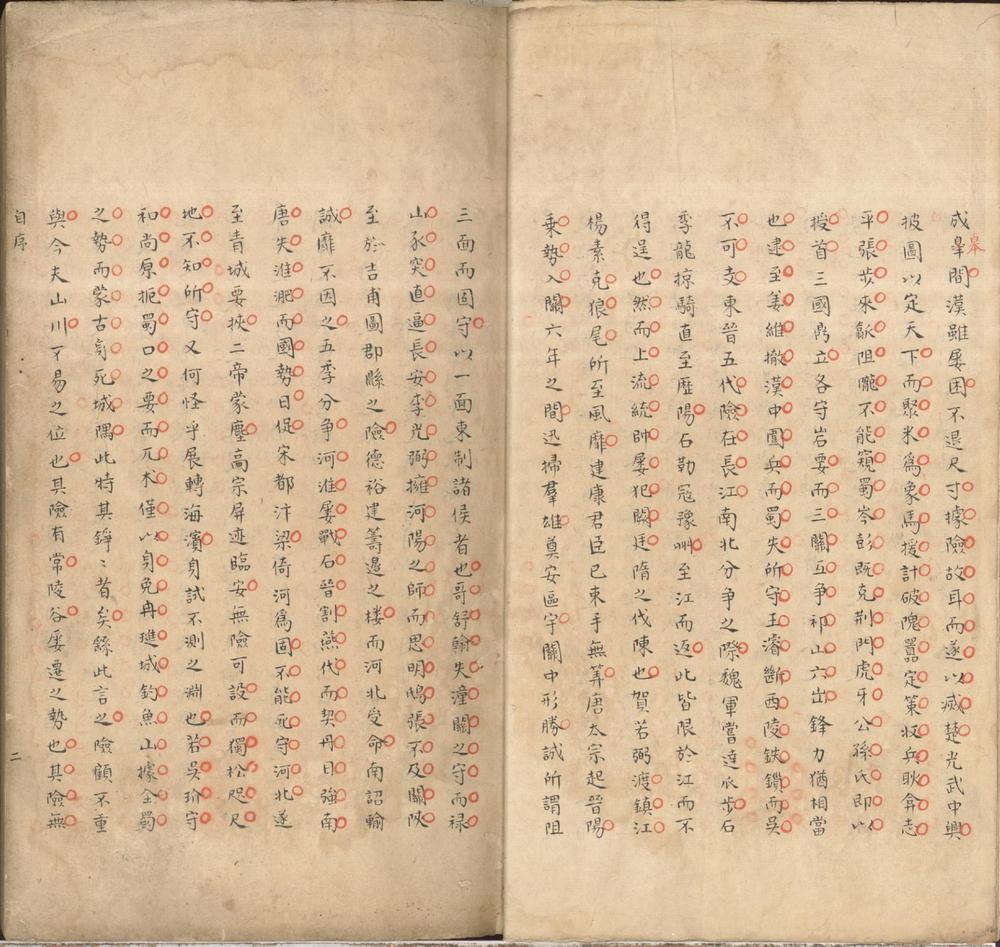 成睾間漢雖屡困不退尺寸據險故耳而遂以滅楚光武中興
皋
披圖以定天下而聚米為象馬援計破隗囂定策収兵耿弇志
平張步來歙阻隴不能窺蜀岑彭既克荆門虎牙公孫氏即以
授首三國鼎立各守岩要而三關互争祁山六出鋒力猶相當
也逮至姜維撤漢中圍兵而蜀失所守王濬斷西陵鉄鎖而吳
不可支東晉五代險在長江南北分争之際魏軍嘗達瓜步石
季龍掠騎直至歷陽石勒冦豫州至江而返此皆限於江而不
得逞也然而上流統帥屡犯闕廷隋之伐陳也賀若弼渡鎮江
楊素克狼尾所至風靡建康君臣已束手無筭唐太宗起晉陽
乗勢入關六年之間迅掃羣雄奠安區宇關中形勝誠所謂阻
三面而固守以一面東制諸侯者也哥舒翰失潼關之守而禄
山豕突直逼長安李光弼擁河陽之師而思明鴟張不及關陜
至於吉甫圖郡縣之險德裕建籌邉之楼而河北受命南詔輸
誠靡不因之五季分争河淮屡戰石晉割燕代而契丹日強南
唐失淮淝而國勢日促宋都汴梁倚河為固不能死守河北遂
至青城要挾二帝蒙塵高宗屏迹臨安無險可設而獨松咫尺
地不知所守又何怪乎展轉海濱身試不測之淵也若吳玠守
和尚原扼蜀口之要而兀术僅以身免冉璡城釣魚山據全蜀
之勢而蒙古身死城隅此特其錚〻者矣繇此言之險顧不重
與今夫山川不易之位也其險有常陵谷屡遷之勢也其險無
自序
二